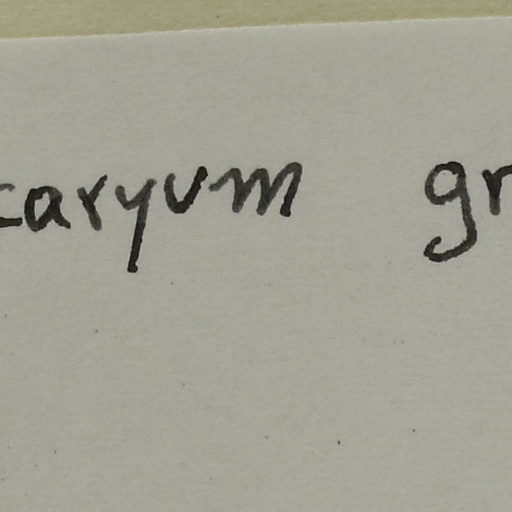 caryum gr